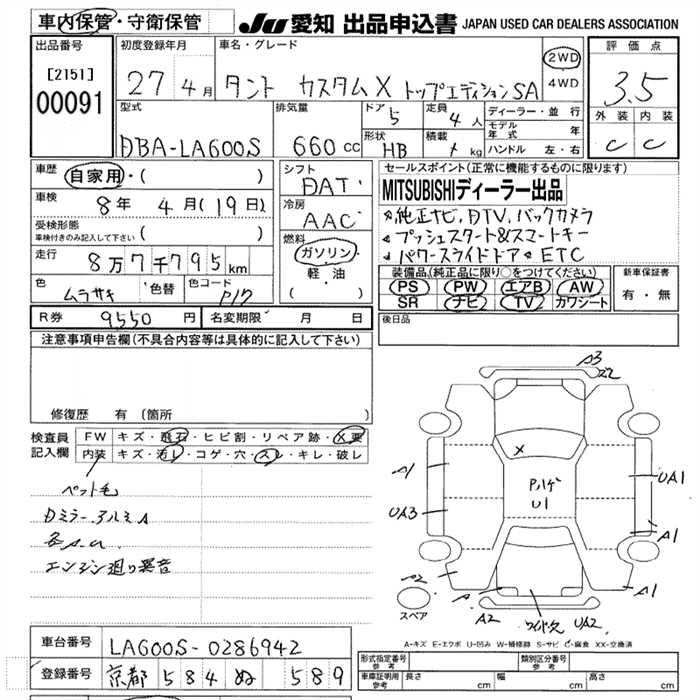 車内保管・守衛保管
JU 愛知 出品申込書 JAPAN USED CAR DEALERS ASSOCIATION
出品番号
[2151]
00091
初度登録年月
27年4月
車名・グレード
タント カスタムX トップエディションSA
2WD
4WD
評価点
3.5
外装 内装
C C
型式
DBA-LA600S
排気量
660cc
ドア
5
定員
4人
形状
HB
積載
kg
ディーラー・並行
モデル年式 年
ハンドル 左・右
車歴
自家用・( )
車検
8年4月(19日)
受検形態
車検付きのみ記入して下さい ( )
走行
8万7千795km
色
ムラサキ
色替
色コード
P17
シフト
DAT
冷房
AAC
燃料
ガソリン
軽・油
( )
セールスポイント(正常に機能するものに限ります)
MITSUBISHIディーラー出品
純正ナビ、DTV、バックカメラ
プッシュスタート&スマートキー
パワースライドドア ETC
装備品(純正品に限り○をつけてください)
PS PW エアB AW
SR ナビ TV カワシート
新車保証書
有・無
後日品
R券 9550円
名変期限 月 日
注意事項申告欄(不具合内容等は具体的に記入して下さい)
修復歴 有(箇所 )
検査員記入欄
FW キズ・飛石・ヒビ割・リペア跡・X要
内装 キズ・汚レ・コゲ・穴・スレ・キレ・破レ
ペット毛
Dミラー アルミA
各A.U
エンジン廻り異音
A3
X
Pハゲ
U1
A1
UA3
A2
A
A2
ワイパー欠
UA2
UA1
A1
A1
スペア
A-キズ E-エクボ U-凹み W-補修跡 S-サビ C-腐食 XX-交換済
車台番号
LA600S-0286942
登録番号
京都 584 ぬ 589
形式指定番号
類別区分番号
車庫証明用参考
長さ cm
幅 cm
高さ cm